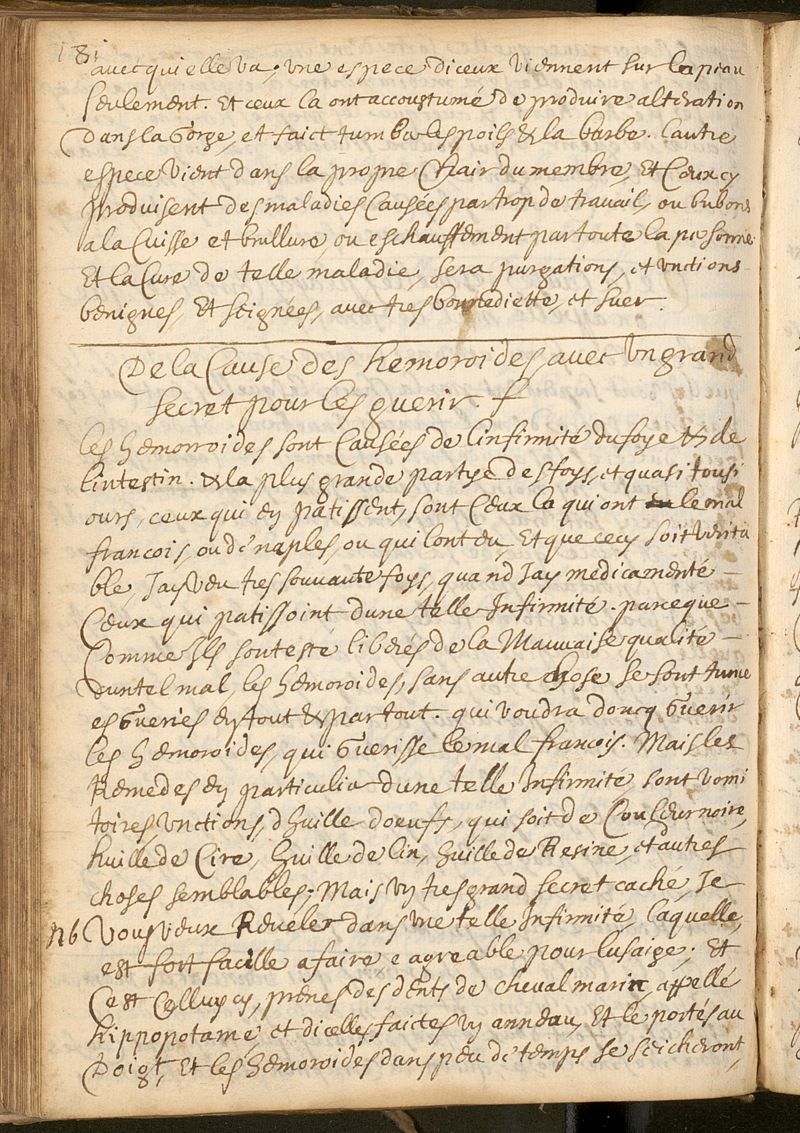 181
avec qui elle va, une espece diceux viennent sur la peau
seulement. Et ceux la ont accoustumé de produire alteration
dans la Gorge, et faict tumber les poils & la barbe. Lautre
espece vient dans la propre Chair du membre, Et Ceux cy
produisent des maladies Causées par trop de travail, ou bubons
a la Cuisse et brullure, ou eschauffement par toute la personne
Et la Cure de telle maladie, sera purgations, et unctions
benignes, Et seignées, avec tres bonne diette, et suer.
De la Cause des hemoroides avec un grand
secret pour les guerir.
les hemorroides sont Causées de linfirmité du foye & de
lintestin. & la plus grande partye des foys, et quasi tousi
ours, ceux qui en patissent, sont Ceux la qui ont le mal
francois, ou de naples, ou qui lont eu, Et que cecy soit verita
ble, Jay veu tres souvante foys, quand Jay medicamenté
Ceux qui patissoint dune telle Infirmité. parceque
Comme Ils sont esté liberés de la Mauvaise qualité
dun tel mal, les hemoroides, sans autre chose se sont tume
es Gueries en tout & par tout. qui voudra doncq Guerir
les hemoroides, qui Guerisse le mal francois. Mais les
Remedes en particulier dune telle Infirmité, sont vomi
toires unctions, dhuille dœufs, qui soit de Couleur noire,
huille de Cire, huille de lin, huille de Resine, et autres
choses semblables; Mais un tres grand secret caché, Je
nb Vous veux Reveler dans une telle Infirmité, laquelle
est fort facille a faire e agreable pour lusaige; Et
Cest Celluy cy, prenes des dents de cheval marin, appellé
hippopotame, et dicelles faictes un anneau, Et le portés au
Doigt, Et les hemoroides dans peu de temps se seicheront,